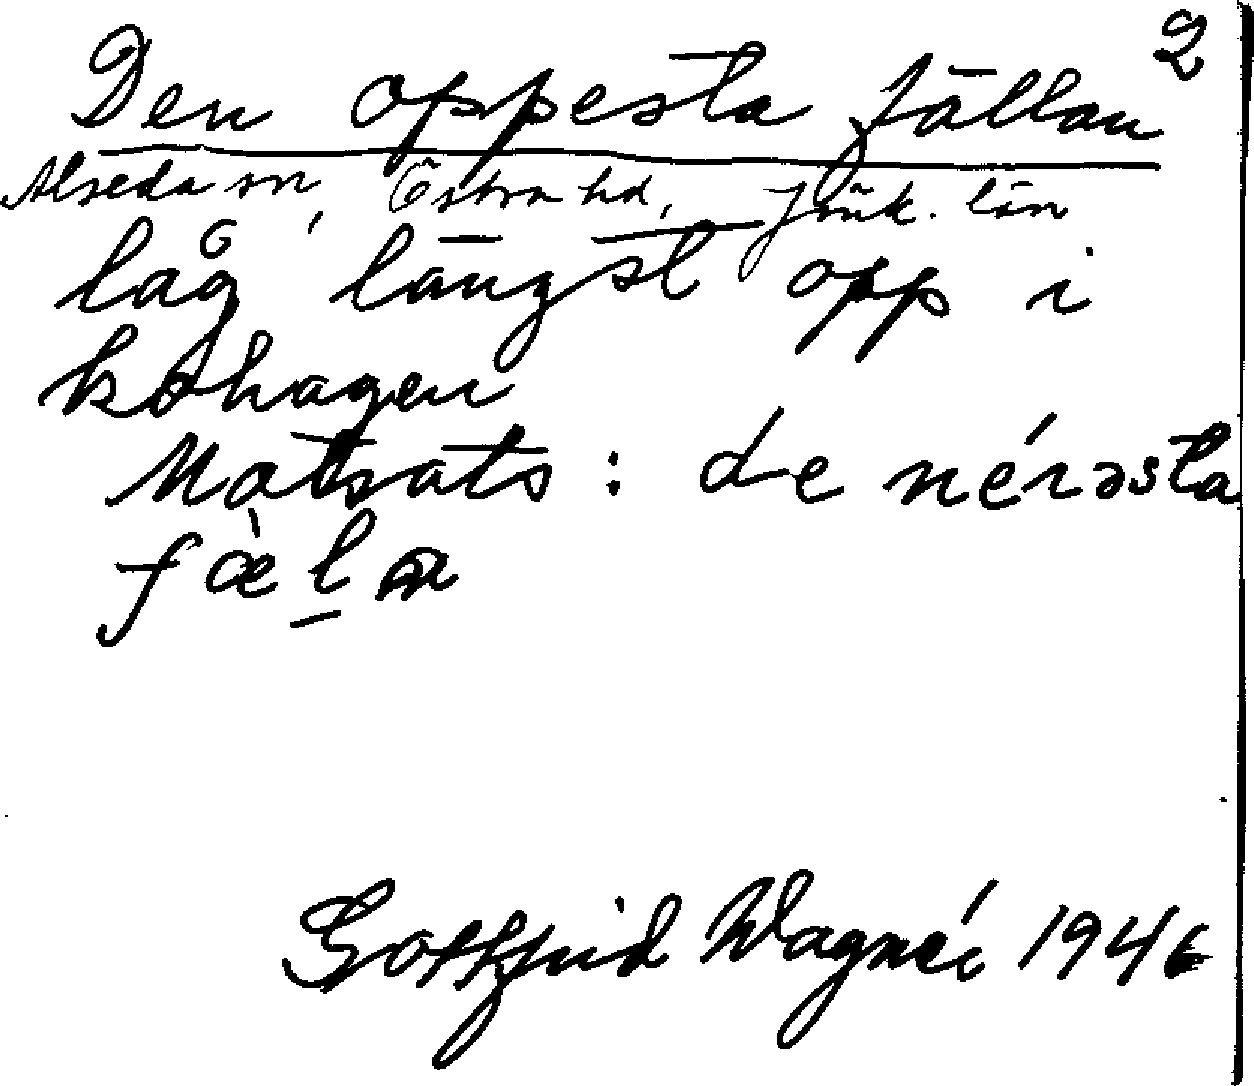 2
Den oppesta fällan
Alseda sn, Östra hd, Jönk. län
låg längst opp i
kohagen
Motsats: de nérəsta
fælα
Gottfrid Wagnér 1946